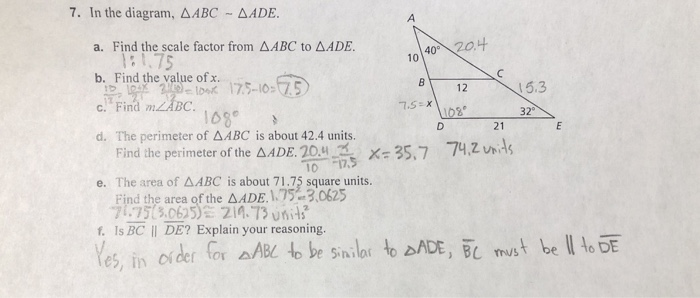 7. In the diagram, △ABC ~ △ADE.
a. Find the scale factor from △ABC to △ADE.
1:1.75
b. Find the value of x.
17.5-10=7.5
c. Find m∠ABC.
108°
d. The perimeter of △ABC is about 42.4 units.
Find the perimeter of the △ADE. 20.4/10 = x/17.5 x=35.7 74.2 units
e. The area of △ABC is about 71.75 square units.
Find the area of the △ADE. 1.75²=3.0625
71.75(3.0625)= 219.73 units²
f. Is BC || DE? Explain your reasoning.
Yes, in order for △ABC to be similar to △ADE, BC must be || to DE
A
40° 20.4
10
B C
12 15.3
7.5=x 108° 32°
D 21 E